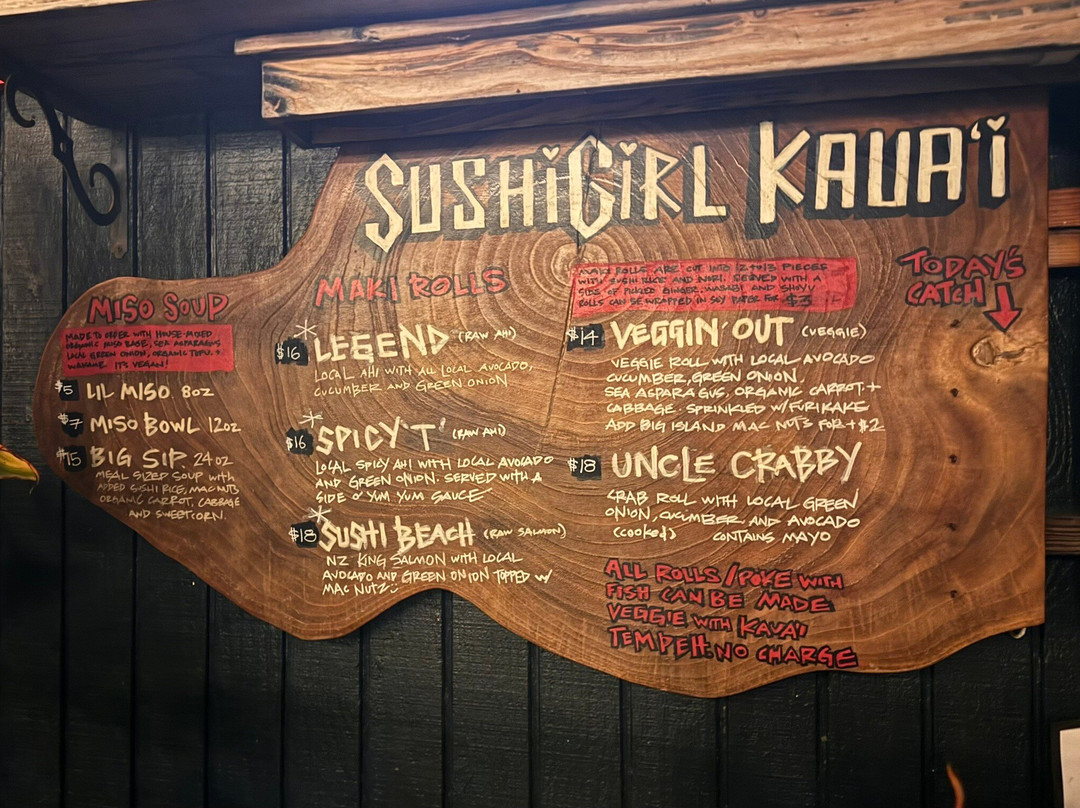 SUSHIGIRL KAUA'I
MISO SOUP
MADE TO ORDER WITH HOUSE-MIXED
ORGANIC MISO BASE, SEA ASPARAGUS
LOCAL GREEN ONION, ORGANIC TOFU, +
WAKAME. IT'S VEGAN!
$5 LIL MISO 8oz
$7 MISO BOWL 12oz
$15 BIG SIP. 24oz
MEAL SIZED SOUP with
ADDED SUSHI RICE, MAC NUTS
ORGANIC CARROT, CABBAGE
AND SWEETCORN.
MAKI ROLLS
MAKI ROLLS ARE CUT INTO 12 to 13 PIECES
WITH SUSHI RICE AND NORI. SERVED WITH A
SIDE OF PICKLED GINGER, WASABI AND SHOYU
ROLLS CAN BE WRAPPED IN SOY PAPER FOR $3
* $16 LEGEND (RAW AHI)
LOCAL AHI WITH ALL LOCAL AVOCADO,
CUCUMBER AND GREEN ONION
* $16 SPICY 'T' (RAW AHI)
LOCAL SPICY AHI WITH LOCAL AVOCADO
AND GREEN ONION. SERVED WITH A
SIDE O' YUM YUM SAUCE
* $18 SUSHI BEACH (RAW SALMON)
NZ KING SALMON WITH LOCAL
AVOCADO AND GREEN ONION TOPPED W/
MAC NUTZ
$14 VEGGIN' OUT (VEGGIE)
VEGGIE ROLL WITH LOCAL AVOCADO
CUCUMBER, GREEN ONION,
SEA ASPARAGUS, ORGANIC CARROT +
CABBAGE. SPRINKLED W/FURIKAKE
ADD BIG ISLAND MAC NUTS FOR +$2
$18 UNCLE CRABBY
CRAB ROLL WITH LOCAL GREEN
ONION, CUCUMBER AND AVOCADO
(cooked) CONTAINS MAYO
ALL ROLLS / POKE WITH
FISH CAN BE MADE
VEGGIE WITH KAUA'I
TEMPEH. NO CHARGE
TODAY'S
CATCH